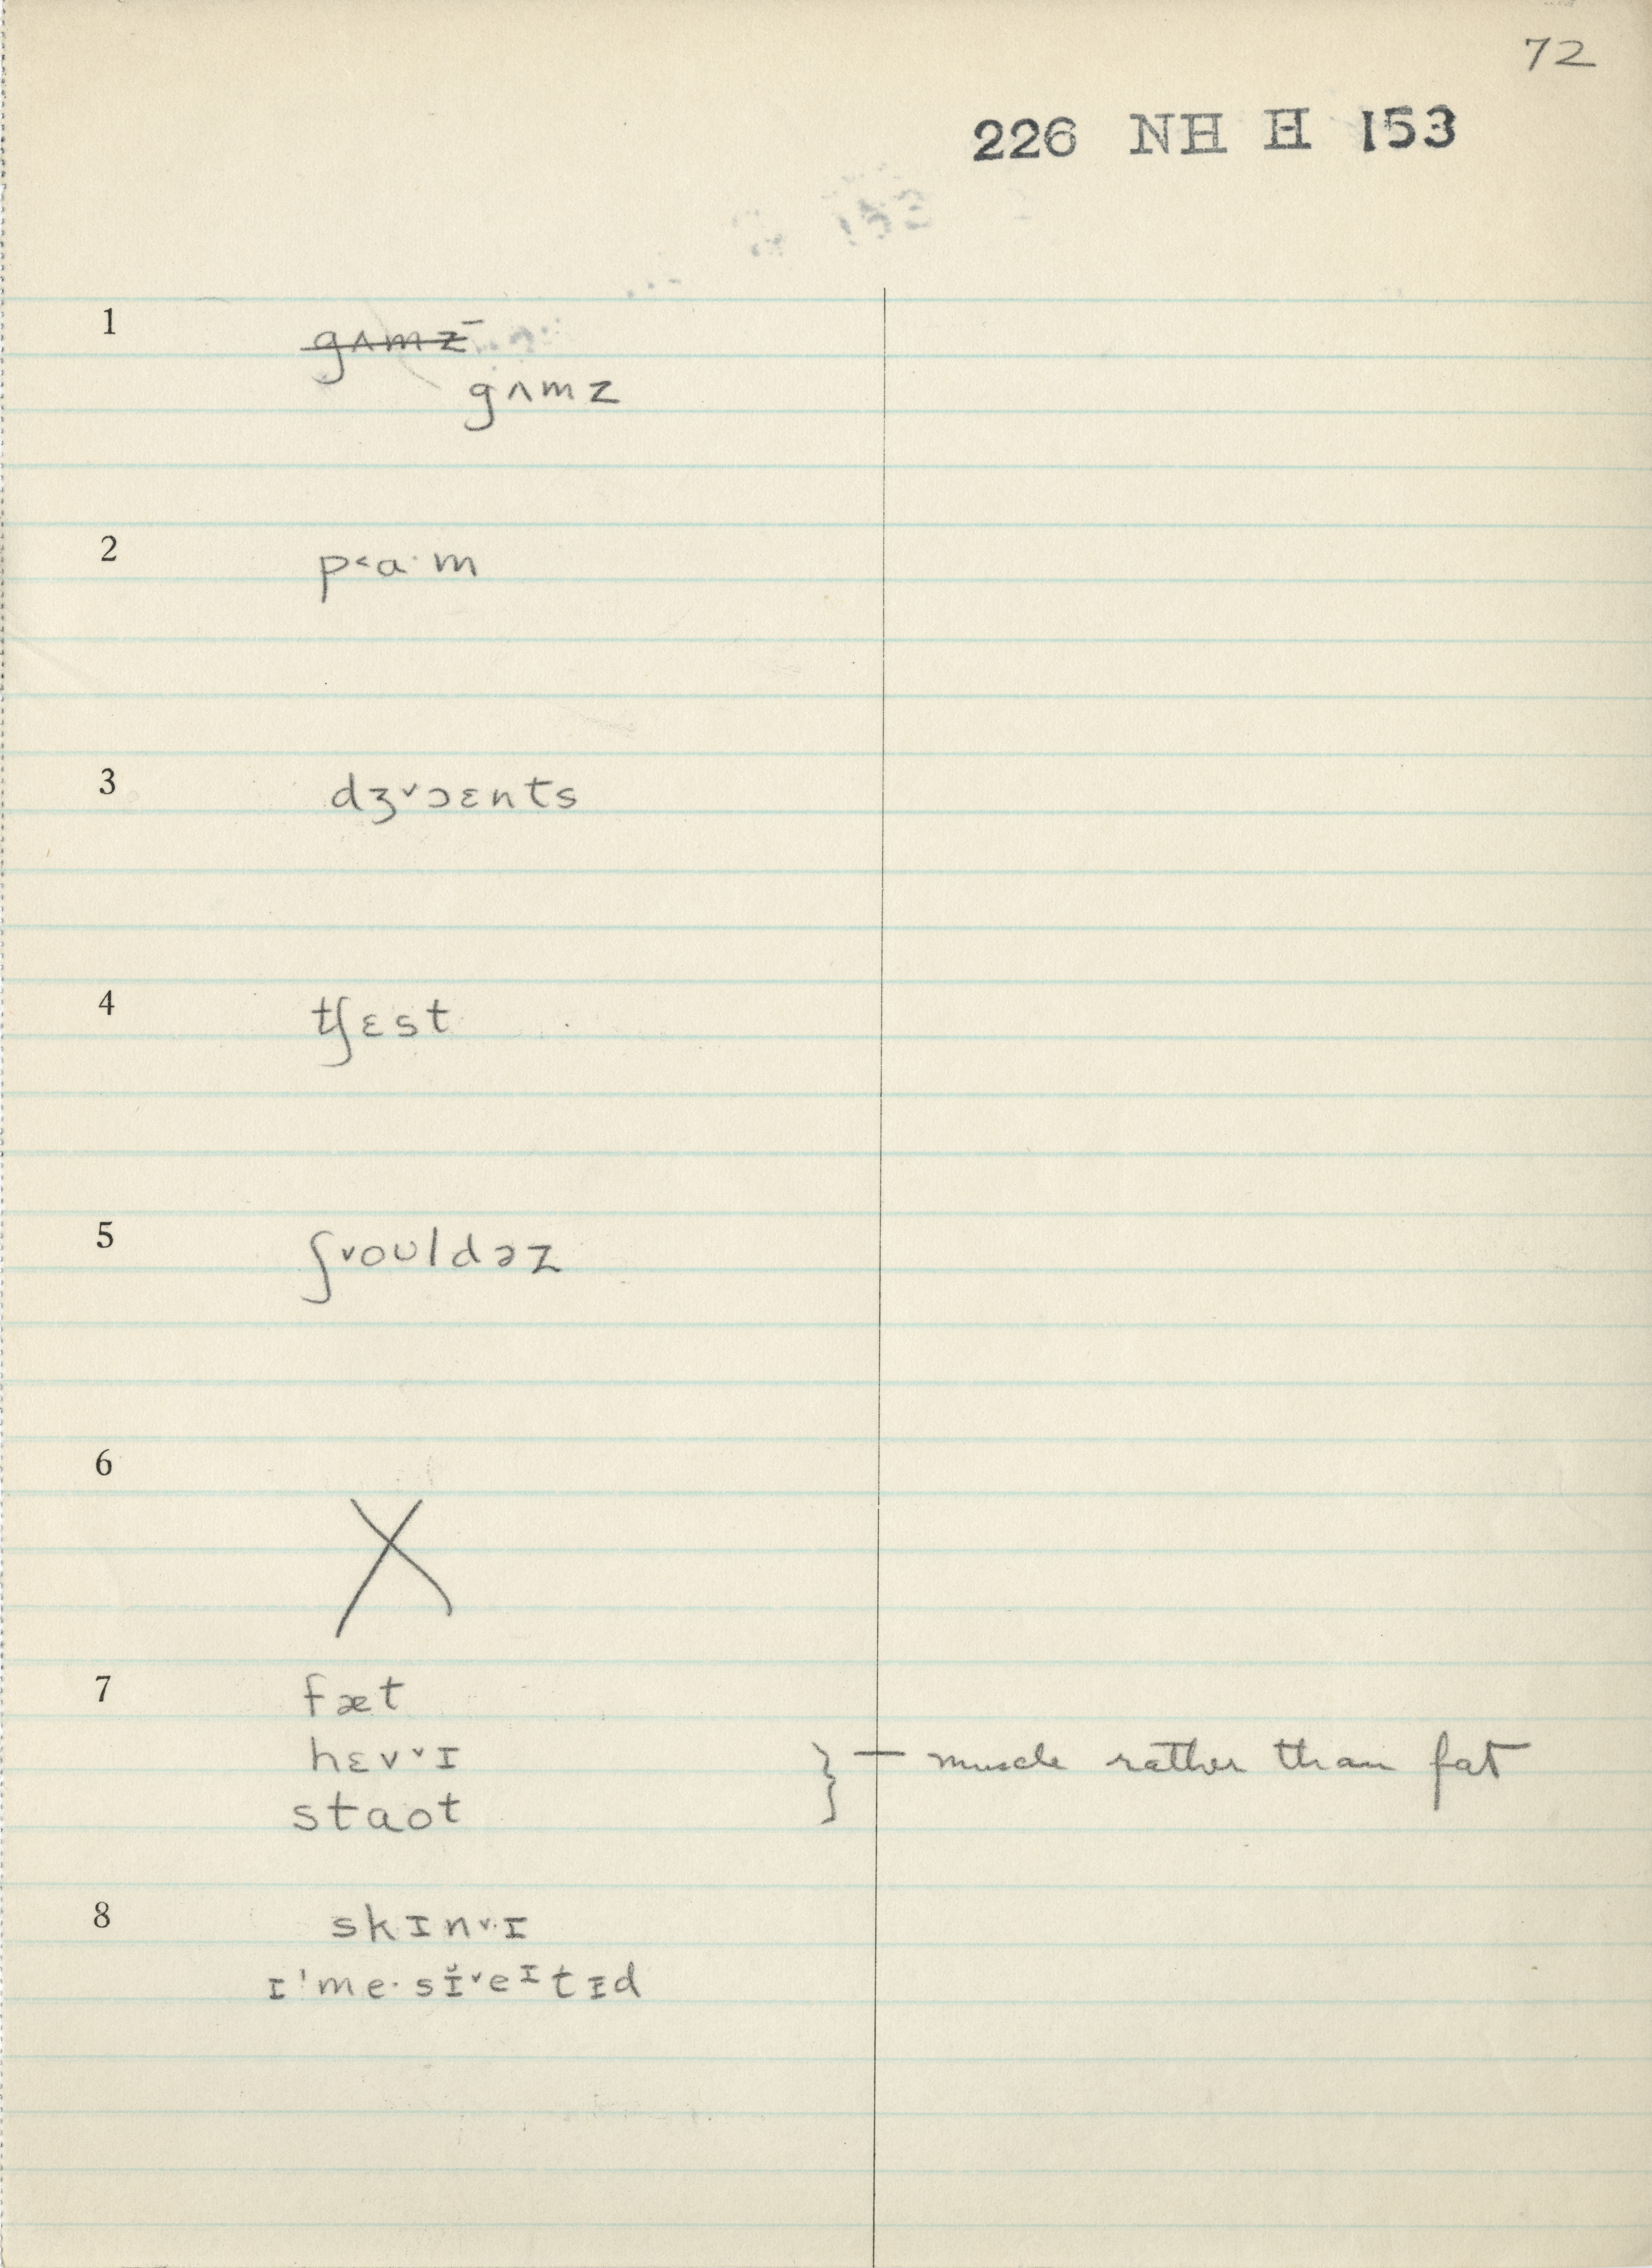 72
226 NH H 153
1 gʌmz
gʌmz
2 p˂a·m
3 dʒ˅ɔɛnts
4 tʃɛst
5 ʃ˅oʊldəz
6 X
7 fæt
hɛv˅ɪ } — muscle rather than fat
staot
8 skɪn˅ɪ
ɪ'me·sɪ̆˅eᶦtɪd